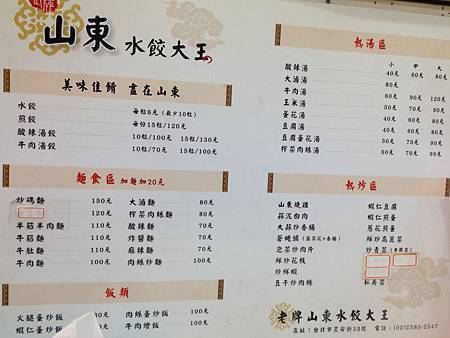 山東 水餃大王
美味佳餚 盡在山東
水餃 每粒6元(最少10粒)
煎餃 每份15粒/120元
酸辣湯餃 10粒/100元 15粒/130元
牛肉湯餃 10粒/70元 15粒/100元
麵食區 加麵加20元
炒碼麵 150元 大滷麵 80元
120元 榨菜肉絲麵 80元
半筋半肉麵 110元 酸辣麵 80元
牛筋麵 110元 炸醬麵 70元
牛肚麵 110元 麻辣麵 70元
牛肉麵 100元 肉絲炒麵 80元
飯類
火腿蛋炒飯 肉絲蛋炒飯 100元
蝦仁蛋炒飯 100元 牛肉燴飯 100元
熱湯區
小 中 大
酸辣湯 40元 60元 80元
大滷湯 40元
牛肉湯 60元 90元 120元
玉米湯 50元 70元 90元
蛋花湯 50元 70元 90元
豆腐湯 50元 70元 90元
豆腐蛋花湯 50元 70元 90元
榨菜肉絲湯 50元 70元 90元
熱炒區
山東燒雞 蝦仁豆腐
蒜泥白肉 蝦仁煎蛋
大蒜炒香腸 蔥花煎蛋
蒼蠅頭 鮮炒高麗菜
泡菜炒肉片 炒青菜
鮮炒花枝
炒鮮蝦
豆干炒肉絲 私房菜
老牌山東水餃大王
店址：台北市農安街33號 電話：(02)2585-2547